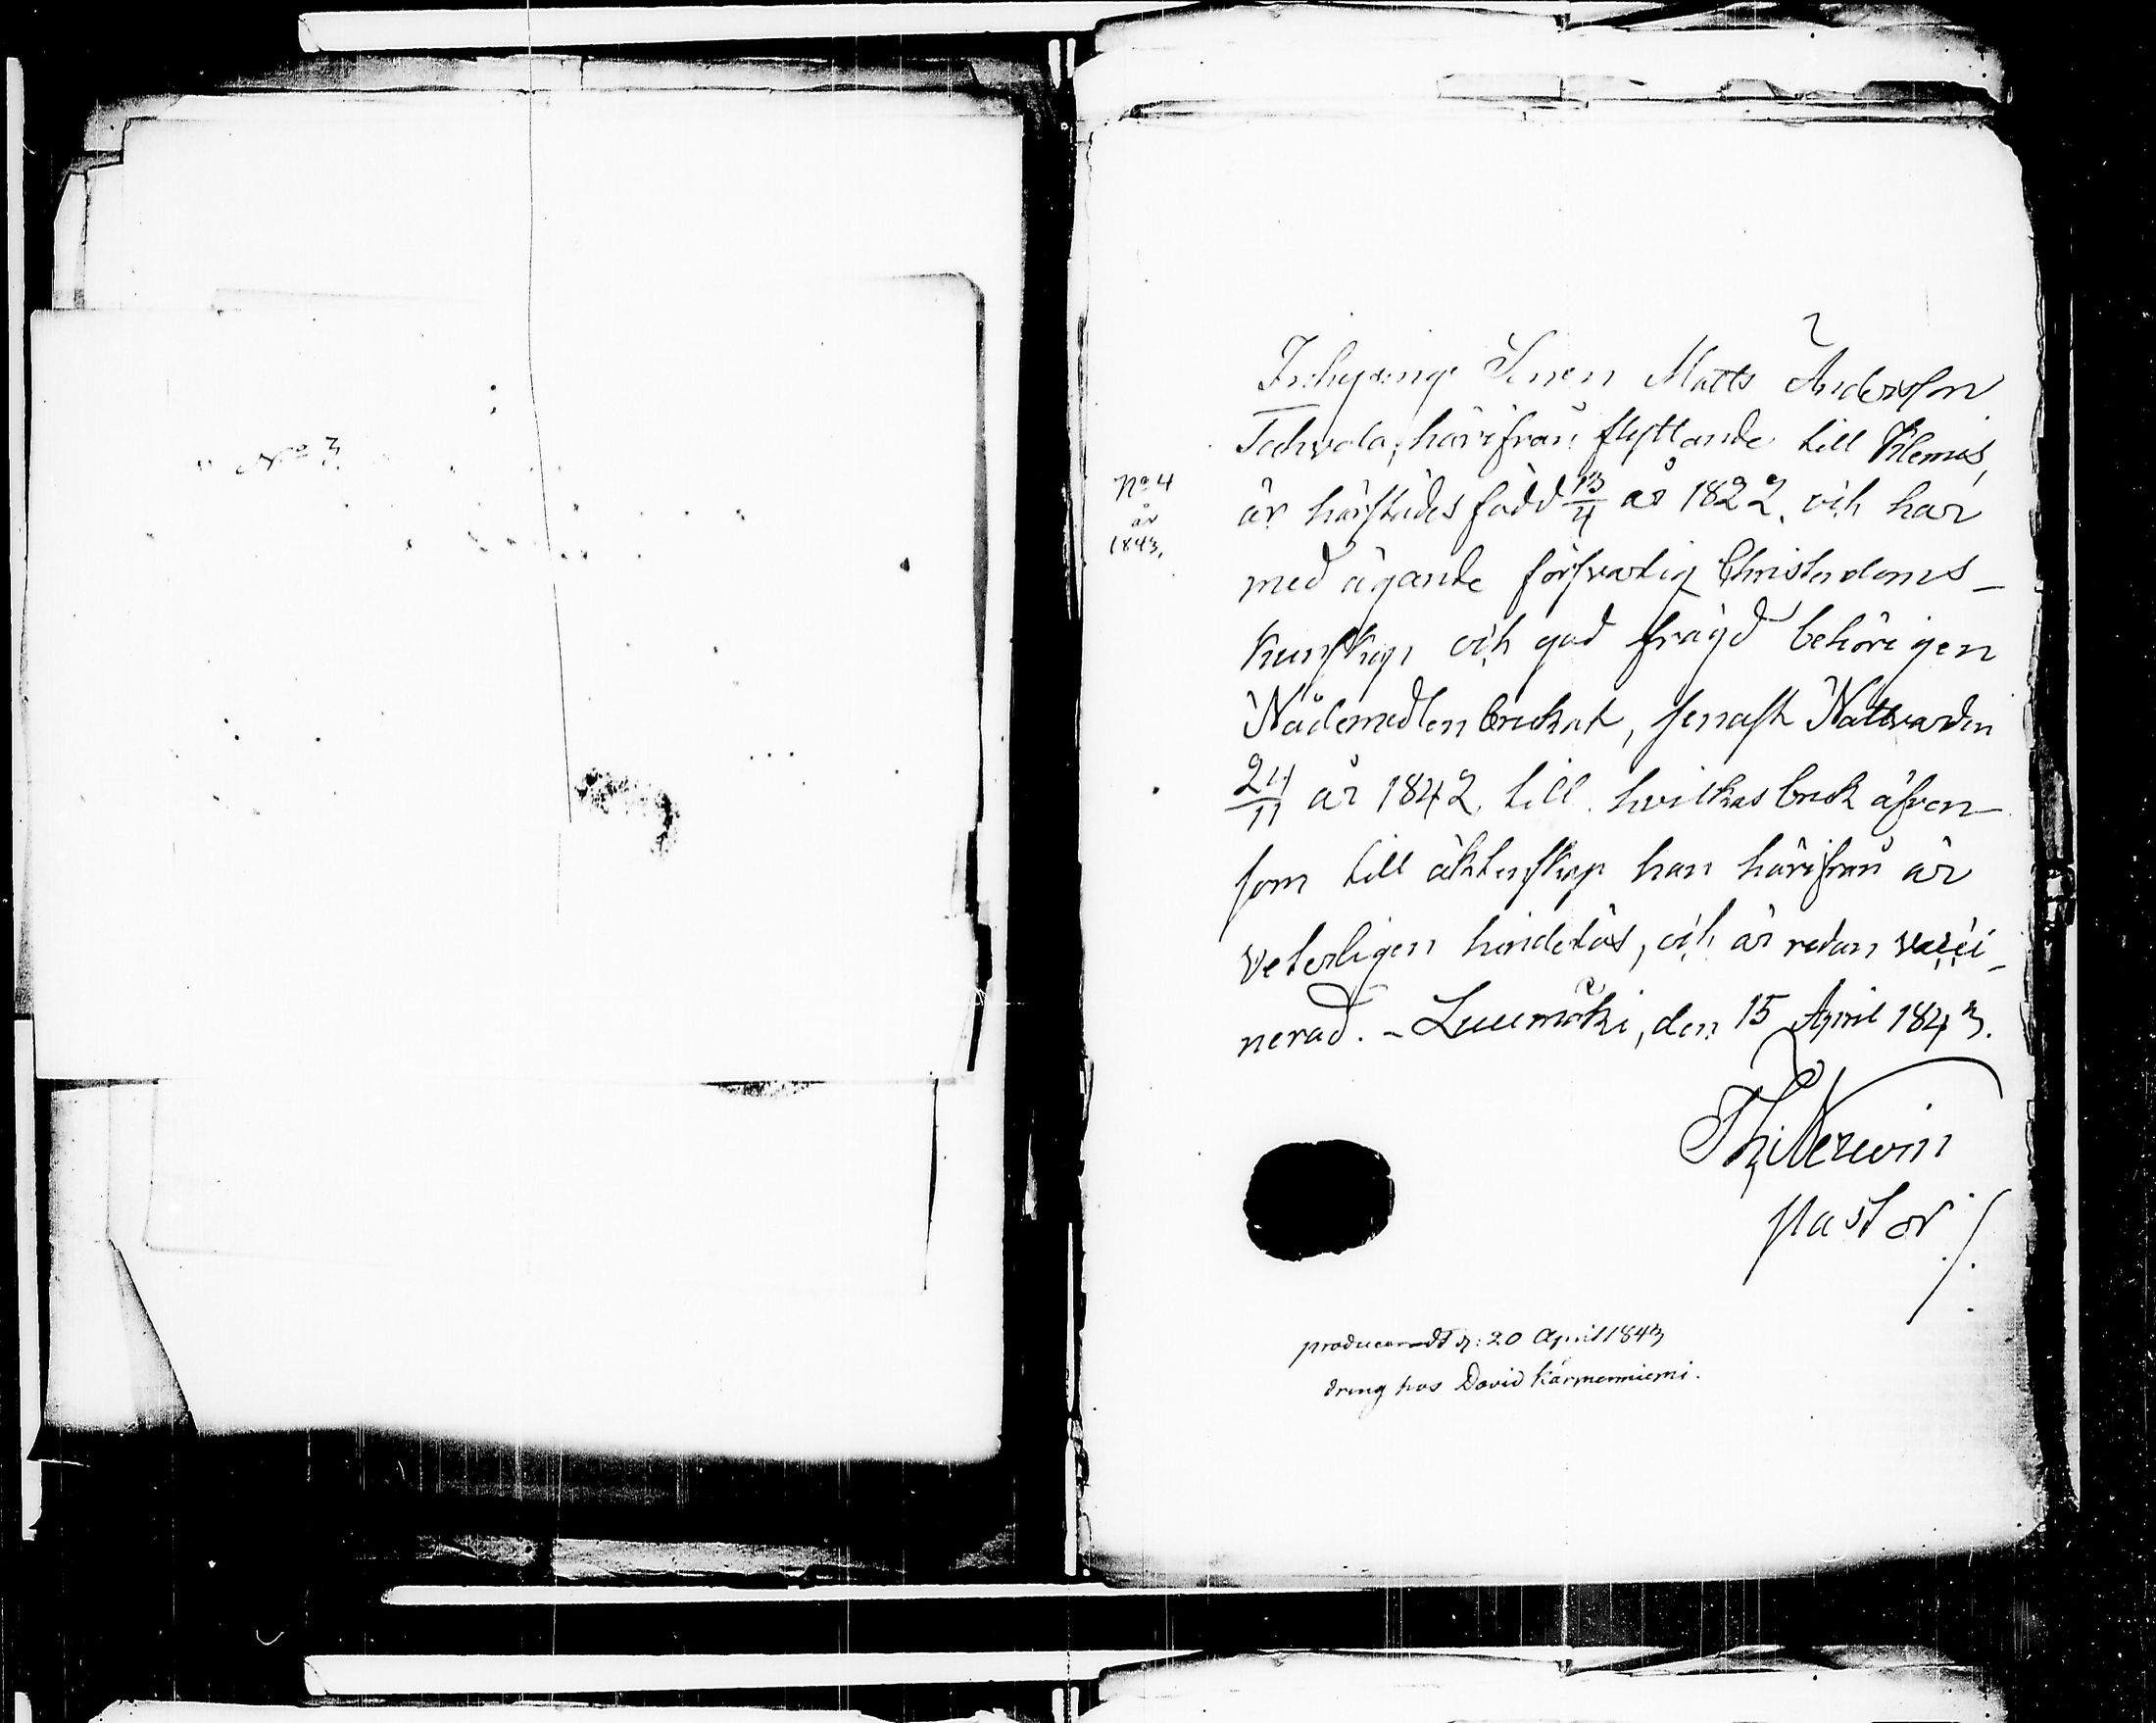 No 3.
Inhysinge Sonen Matts Andersson
Tachvola, härifrån flyttande till Klemis,
No 4
år
1843.
är härstädes född 13/4 år 1822, och har
med ägande försvarlig Christendoms-
kunskap och god frägd behörigen
Nådemedlen brukat, senast Nattvarden
24/11 år 1842, till hvilkas bruk äfven-
som till äktenskap han härifrån är
veterligen hinderlös, och är redan vacci-
nerad. - Luumäki, den 15 April 1843.
Pastor
produceradt d: 20 April 1843
dräng hos David Kärmenniemi.